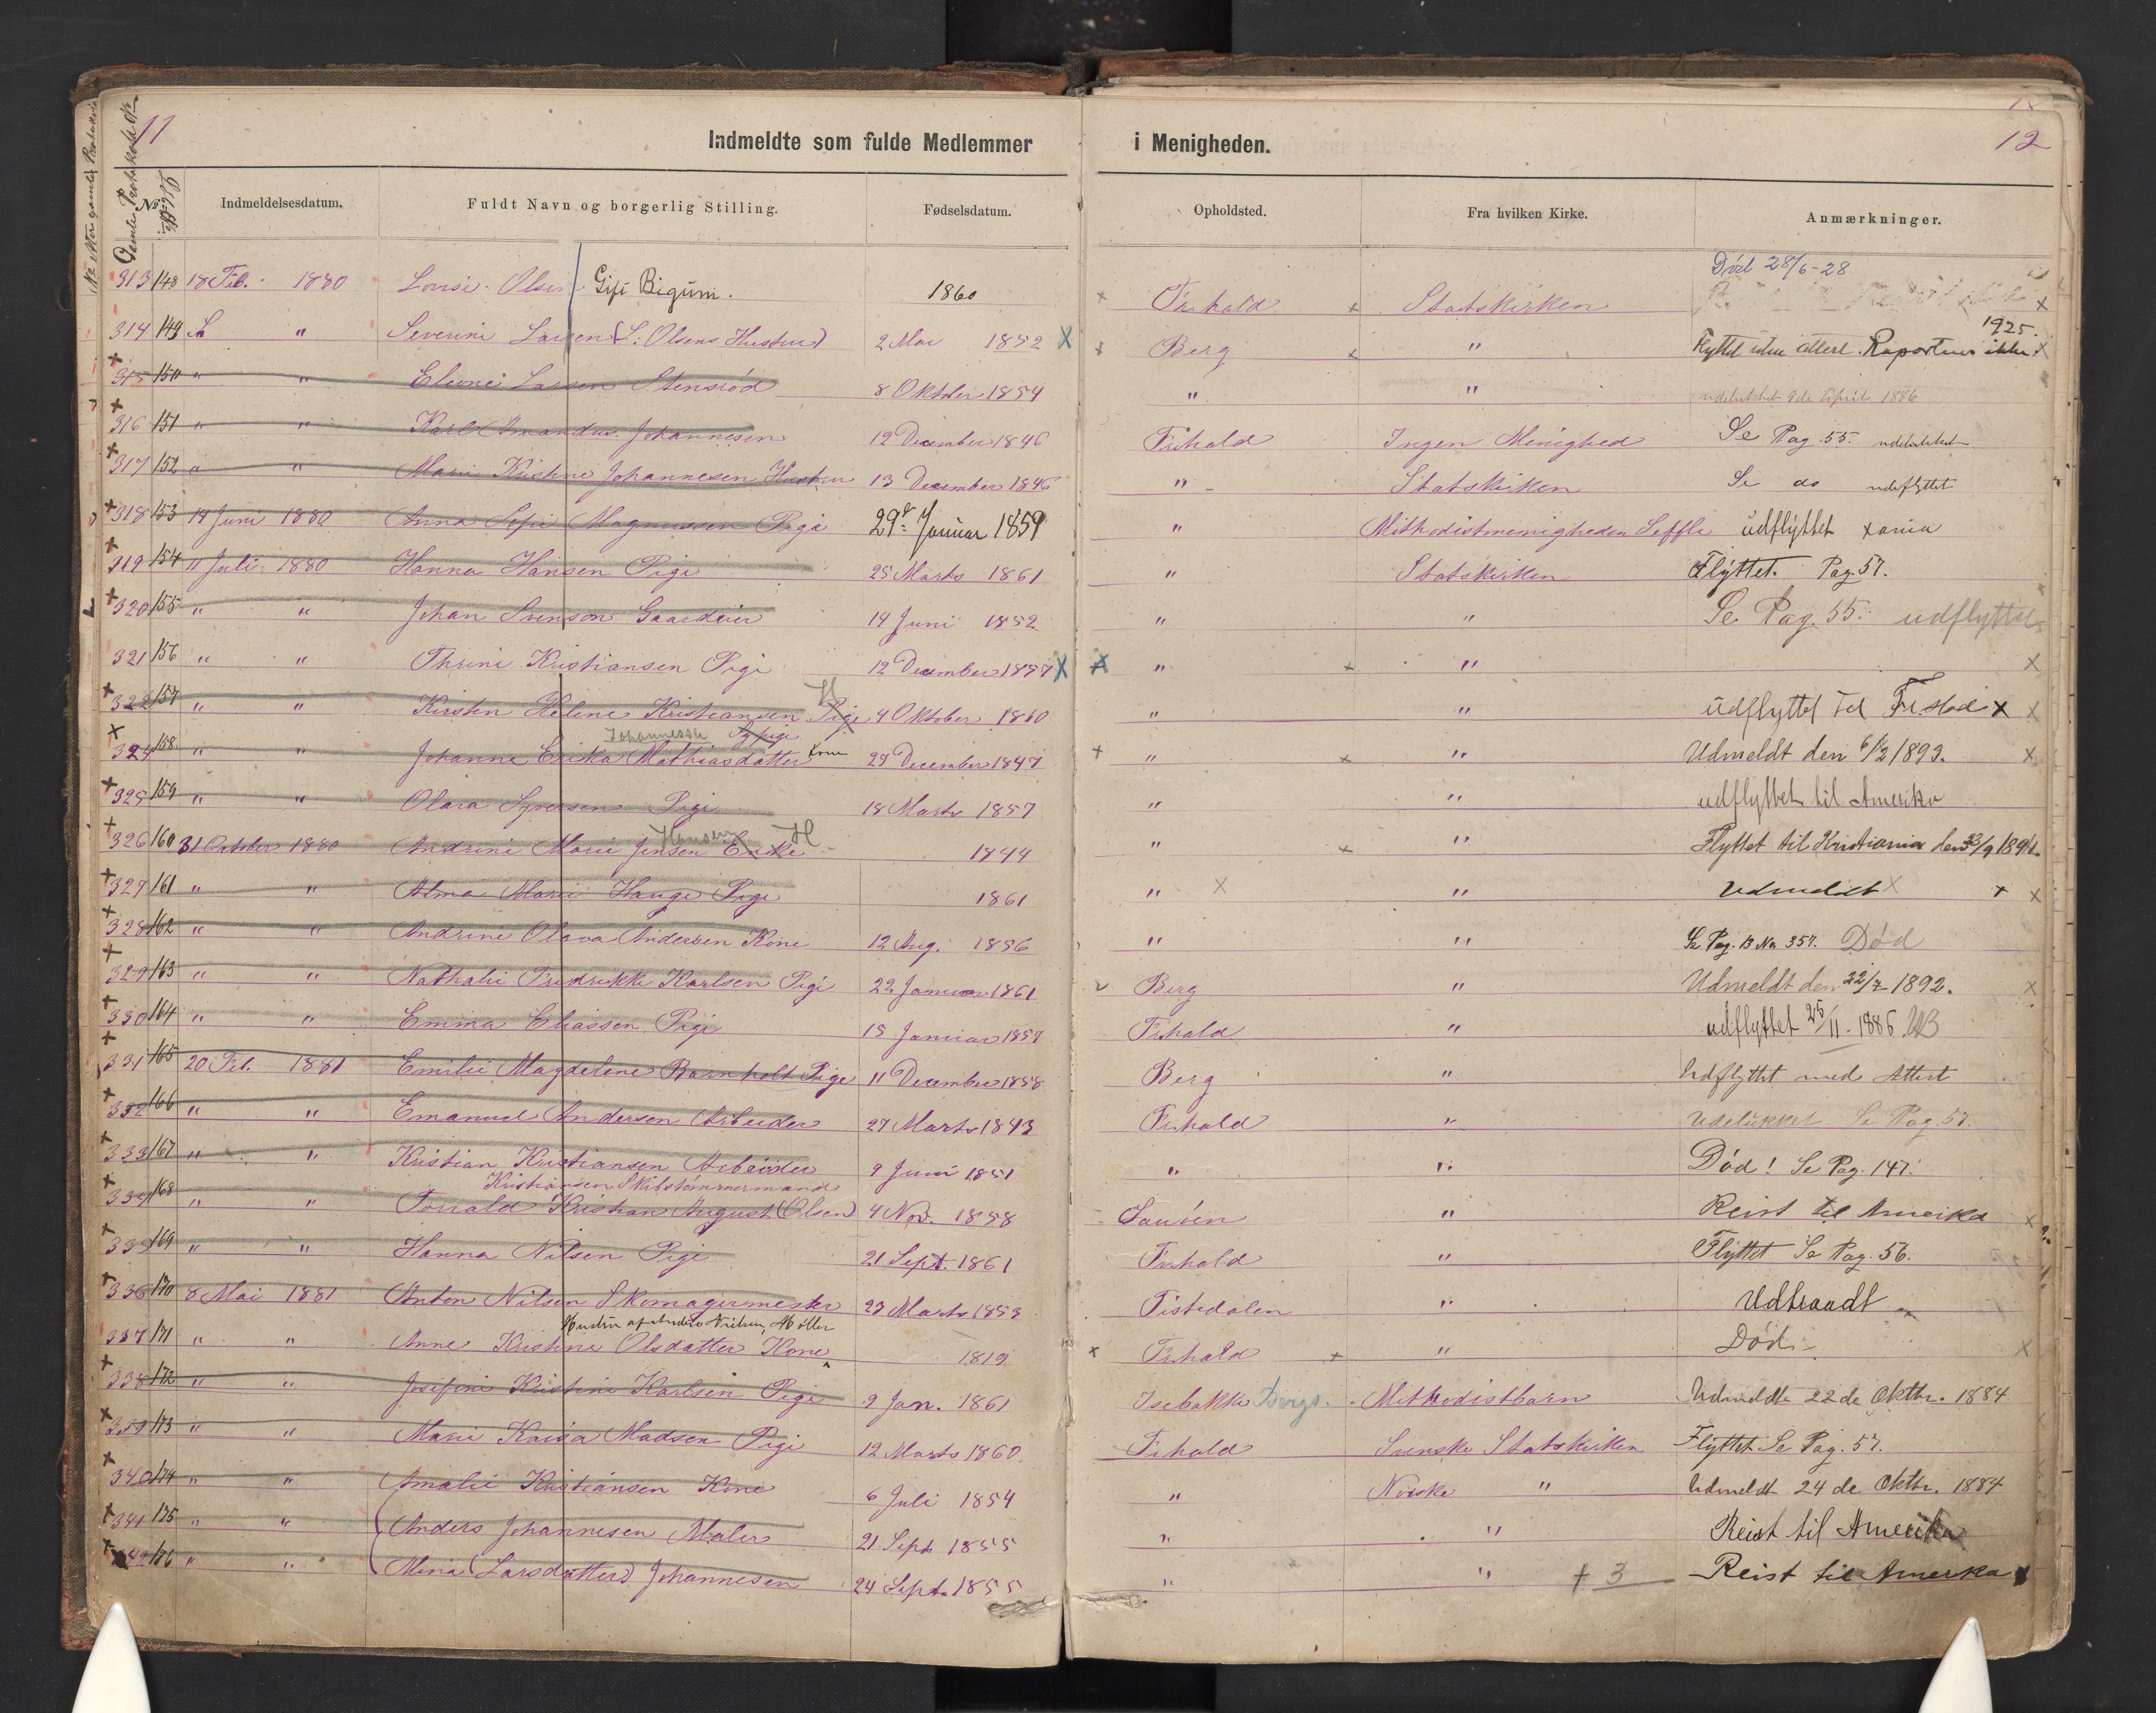 11
12
Indmeldte som fulde Medlemmer i Menigheden.
No. Indmeldelsesdatum. Fuldt Navn og borgerlig Stilling. Fødselsdatum. Opholdsted. Fra hvilken Kirke. Anmærkninger.
Død 28/6-28
313 148 18 Feb. 1880 Lovise Olsen Gift Bigum. 1860 Fr.hald Statskirken
1925.
314 149 " Severine Larsen (S. Olsens Hustru) 2 Mai 1852 Berg " Flyttet uden attest. Raporteres ikke.
315 150 " " Elione Larsen Stensrød 8 Oktober 1854 " " udelukket 9de April 1886
316 151 " " Karl Amandus Johannesen 12 December 1846 Fr.hald Ingen Menighed Se Pag. 55. udelukket
317 152 " " Marie Kristine Johannesen Hustru 13 December 1846 " Statskirken Se do udeflyttet
318 153 14 Juni 1880 Anna Sofie Magnussen Pige 29de Januar 1859 " Methodistmenigheden Seffle udflyttet xania
319 154 11 Juli 1880 Hanna Hansen Pige 25 Marts 1861 " Statskirken Flyttet. Pag. 57.
320 155 " " Johan Svenson Gaardeier 14 Juni 1852 " " Se Pag. 55. udflyttet
321 156 " " Thrine Kristiansen Pige 12 December 1857 " "
322 157 " " Kirsten Helene Kristiansen Pige H 4 Oktober 1860 " " udflyttet til Fr.stad
Johannessen Sypige
324 158 " " Johanne Erika Mathiasdatter Kone 27 December 1847 " " Udmeldt den 6/2 1893.
325 159 " " Olava Syversen Pige 18 Marts 1857 " " udflyttet til Amerika
326 160 31 October 1880 Andrine Marie Jensen Hansen Enke H 1844 " " Flyttet til Kristiania den 23/9 1891.
327 161 " " Alma Marie Hauge Pige 1861 " " Udmeldt
328 162 " " Andrine Olava Andersen Kone 12 Aug. 1856 " " Se Pag. 13 No 357. Død
329 163 " " Nathalie Fredrikke Karlsen Pige 22 Januar 1861 Berg " Udmeldt den 22/7 1892.
330 164 " " Emma Eliassen Pige 15 Januar 1857 Fr.hald " udflyttet 25/11 - 1886
331 165 20 Feb. 1881 Emilie Magdelene Barnholt Pige 11 December 1858 Berg " Udflyttet med Attest
332 166 " " Emanuel Andersen Arbeider 27 Marts 1843 Fr.hald " Udelukket Se Pag. 57.
333 167 " " Kristian Kristiansen Arbeider 9 Juni 1851 " " Død! Se Pag. 147.
Kristiansen Skibstømmermand
334 168 " " Torvald Kristian August (Olsen) 4 Nov. 1858 Sauøen " Reist til Amerika
335 169 " " Hanna Nilsen Pige 21 Sept. 1861 Fr.hald " Flyttet Se Pag. 56.
336 170 8 Mai 1881 Anton Nilsen Skomagermester 23 Marts 1853 Tistedalen " Udtraadt
Hustru af Anders Nielsen, Møller
337 171 " " Anne Kristine Olsdatter Kone 1819 Fr.hald " Død
338 172 " " Josefine Kristine Karlsen Pige 9 Jan. 1861 Isebakke Bergs. Methodistbarn Udmeldte 22 de Oktbr. 1884
339 173 " " Marie Kaisa Madsen Pige 12 Marts 1860 Fr.hald Svenske Statskirken Flyttet Se Pag. 57.
340 174 " " Amalie Kristiansen Kone 6 Juli 1854 " Norske " Udmeldt 24 de Oktbr. 1884
341 175 " " Anders Johannesen Maler 21 Sept 1855 " " Reist til Amerika
342 176 " " Mina (Larsdatter) Johannesen 24 Sept. 1855 " " + 3 Reist til Amerika